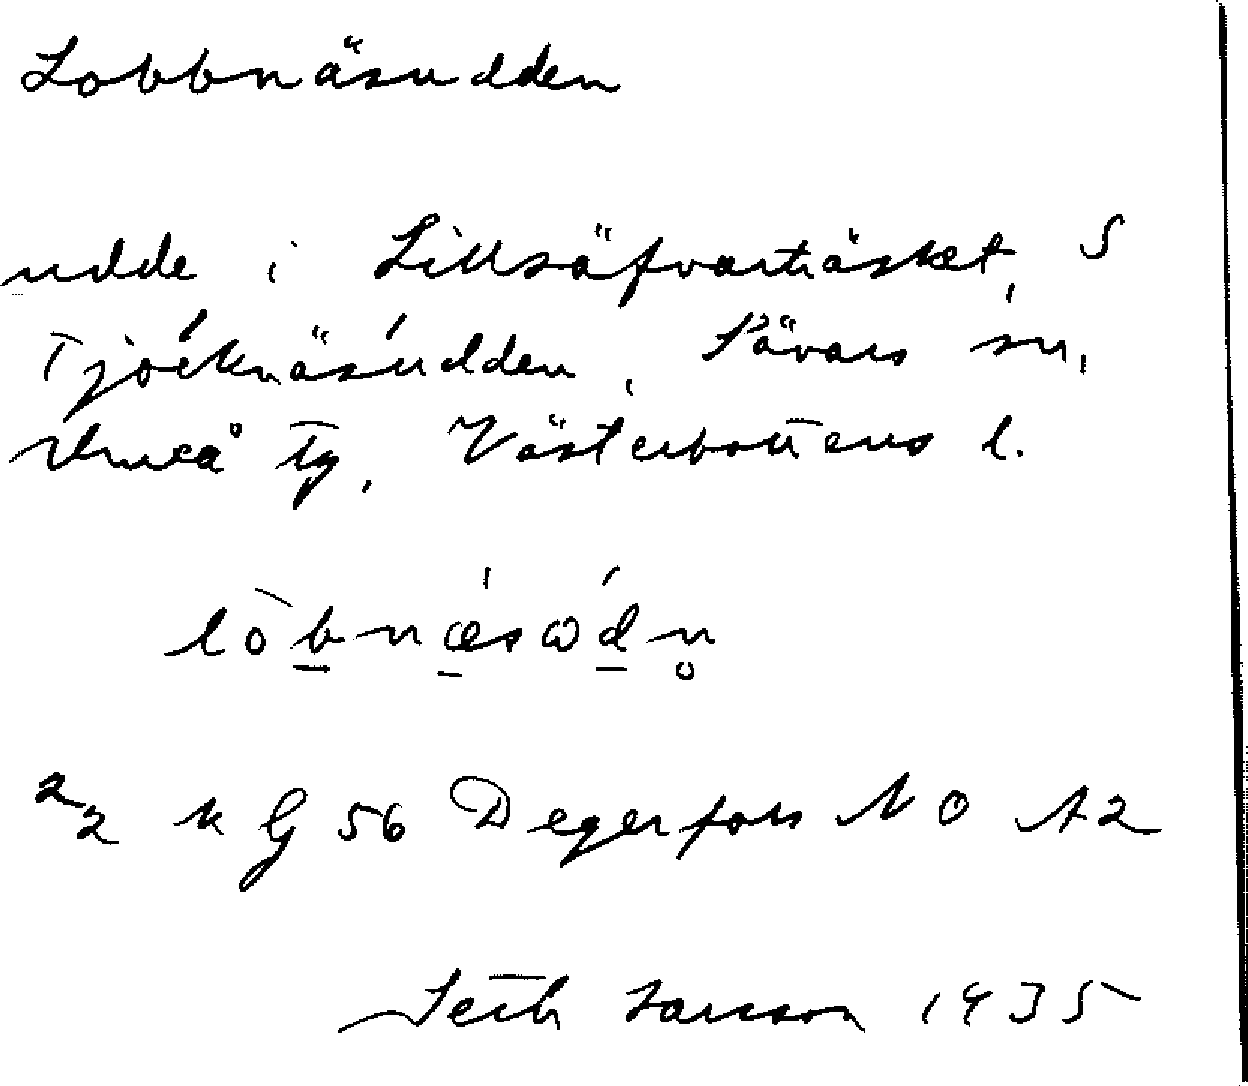 Lobbnäsudden
udde i Lillsäfvarträsket, S
Tjocknäsudden, Sävars sn,
Umeå tg, Västerbottens l.
lòbnǽsωdn̥
2/2 k G 56 Degerfors NO A2
Seth Larsson 1935